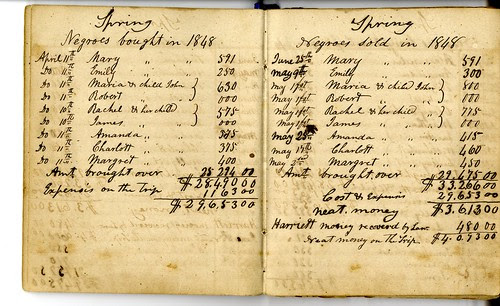 Spring
Negroes bought in 1848
April 11th Mary " " 591
Do 11th Emily " " 250
Do 11th Maria & child John } 650
Do 11th Robert " } 000
Do 10th Rachel & her child } 575
Do 10th James " } 000
Do 11th Amanda " 395
Do 11th Charlott 375
Do 11th Margret 400
Amt brought over 25 294 00
$28.490 00
Expensis on the trip 01 163 00
$29.653 00
Spring
Negroes sold in 1848
June 25th Mary " " 591
May 9th Emily " " 300
May 17th Maria & child John } 800
May 17th Robert " } 000
May 17th Rachel & her child } 715
May 17th James " } 000
May 25th Amanda " 415
May 17th Charlott 460
May Margret 450
Amt brought over 29.475 00
$33.266 00
Cost & Expensis 29.653 00
neat money $3.613 00
Harriett money recovered by Law 480 00
Neat money on the Trip $4.093 00